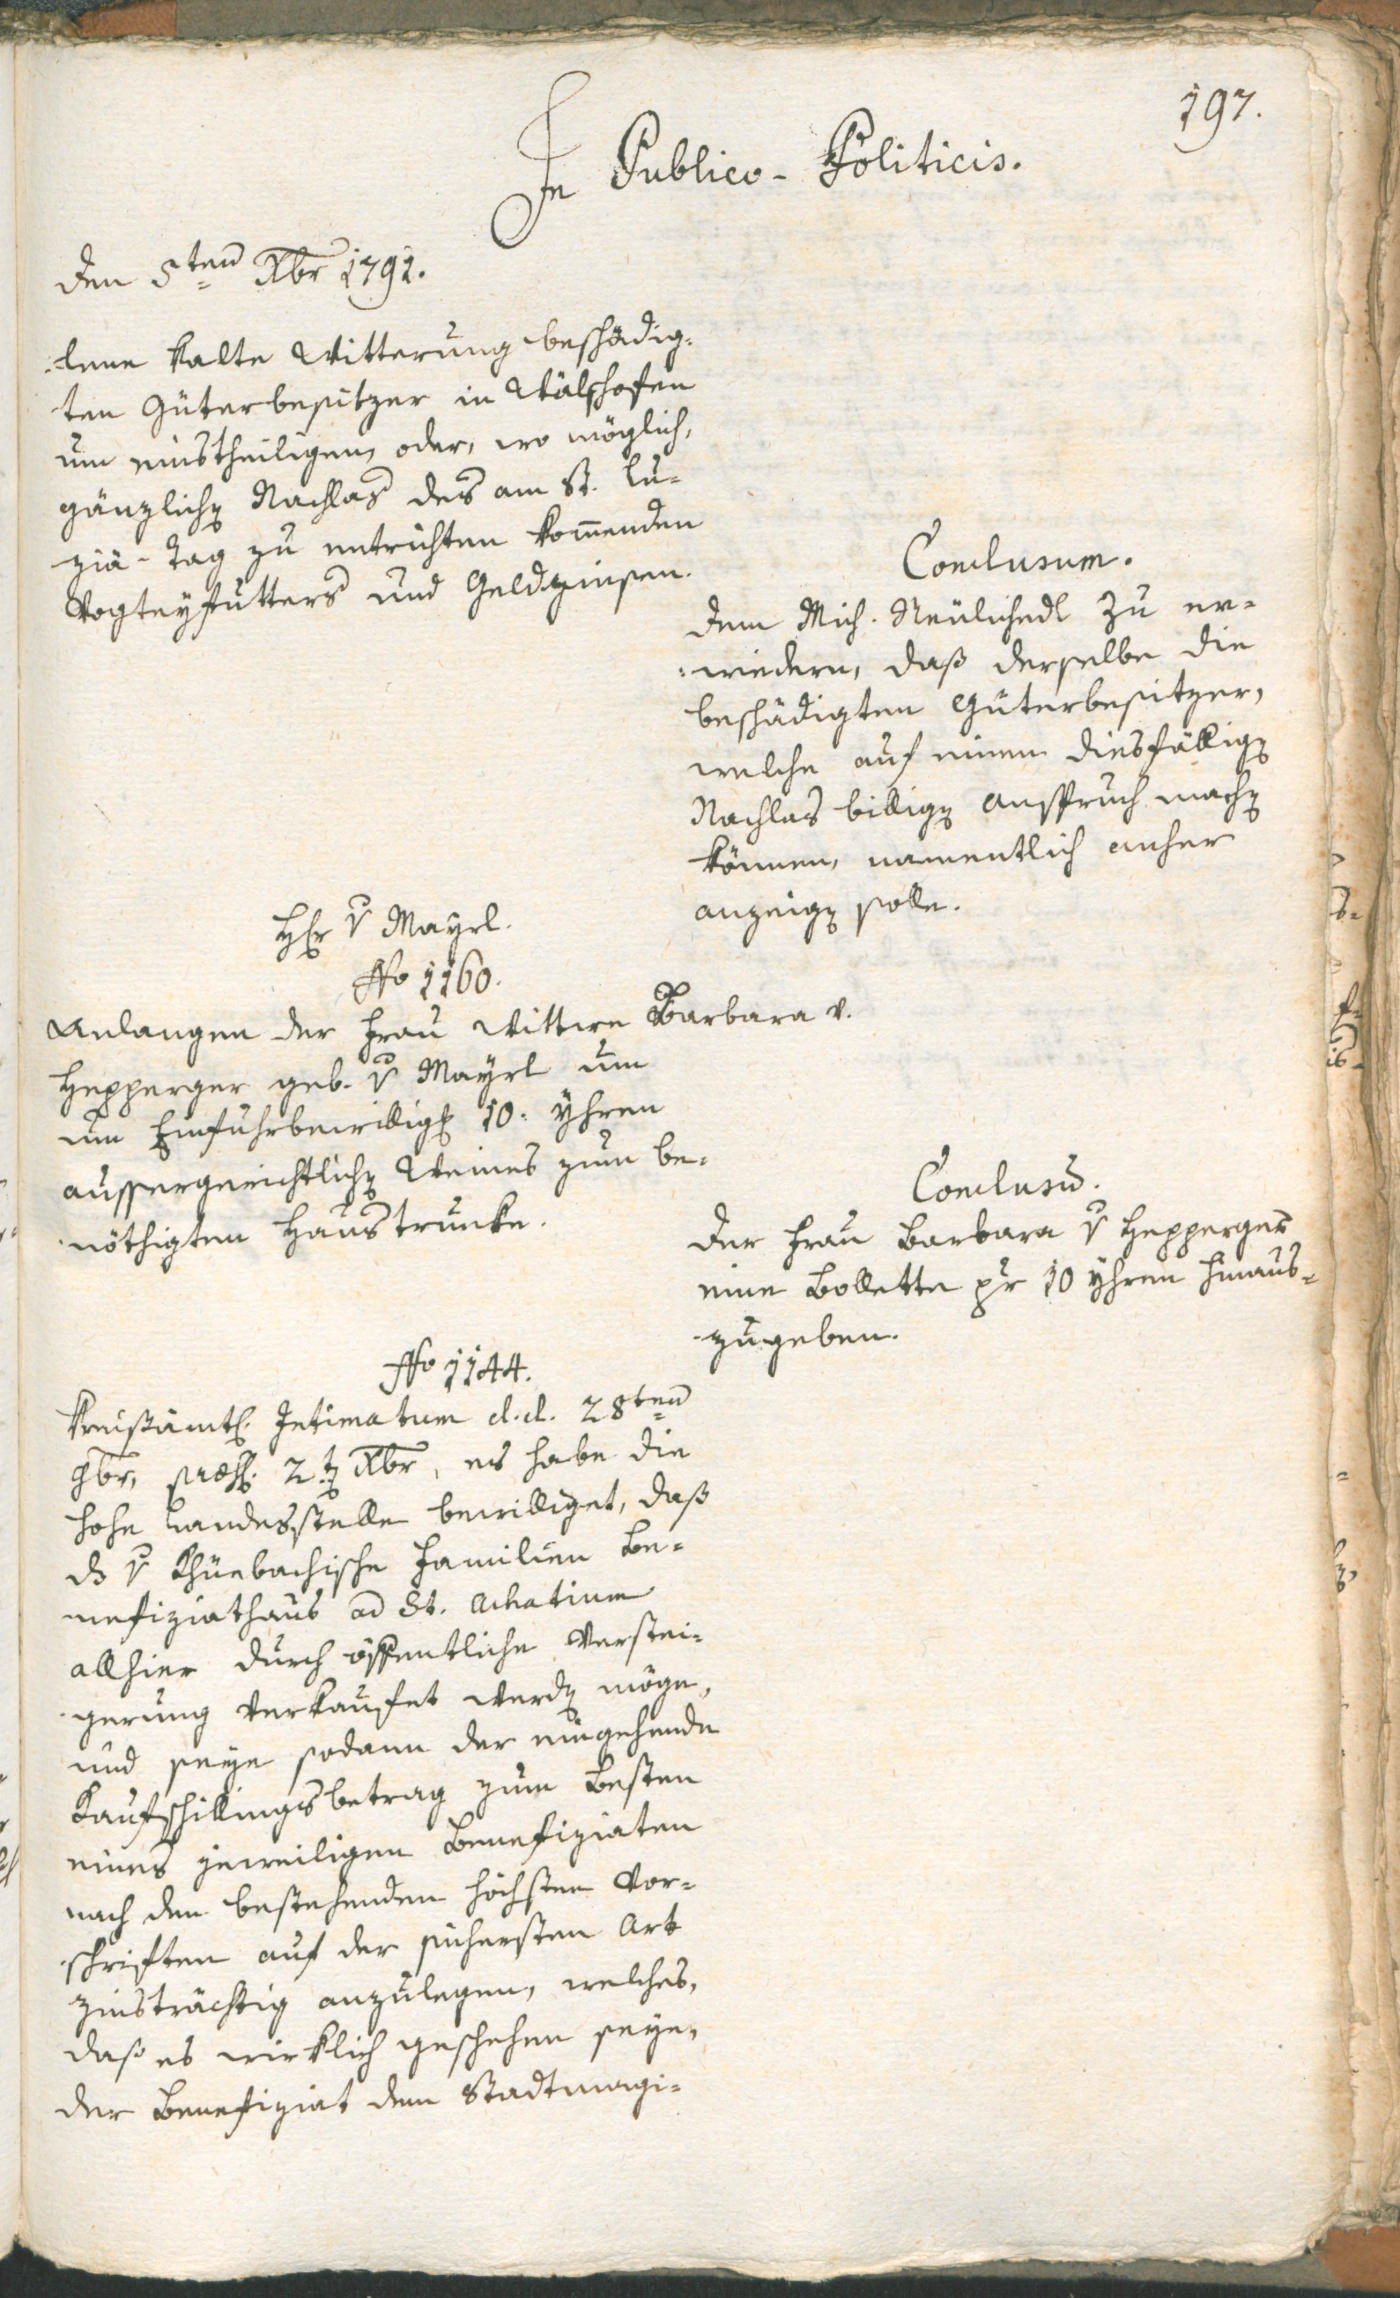 197.
In Publico-Politicis.
den 5ten Xbr 1791.
lene kalte Witterung beschädig-
ten Güterbesitzer in Wälschofen
um einstheiligen, oder, wo möglich,
gänzlichen Nachlas des am St. Lu-
ziä-Tag zu entrichten kom̄enden
Vogteyfutters und Geldzinsen.
Conclusum.
dem Mich. Neülichedl zu er-
wiedern, daß derselbe die
beschädigten Güterbesitzer,
welche auf einen diesfälligen
Nachlas billigen Anspruch machen
können, namentlich anher
anzeigen solle.
Hr v Mayrl.
No 1160.
Anlangen der Frau Wittwe Barbara v.
Hepperger geb. v Mayrl um
um Einfuhrbewilligg 10. Yhren
aussergerichtlichen Weines zum be-
nöthigten Haustrunke.
Conclusū.
der Frau Barbara v Hepperger
eine Bollette pr 10 Yhren hinaus-
zugeben.
No 1144.
Kreisämtl. Intimatum d. d. 28ten
9br, præs. 2ten Xbr, es habe die
hohe Landesstelle bewilliget, daß
ds v Khüebachische Familien Be-
nefiziathaus ad St. Achatium
allhier durch öffentliche Verstei-
gerung verkaufet werden möge,
und seye sodann der eingehende
Kaufschillingsbetrag zum Besten
eines jeweiligen Benefiziaten
nach den bestehenden höchsten Vor-
schriften auf der sichersten Art
zinsträchtig anzulegen, welches,
daß es wirklich geschehen seye,
der Benefiziat dem Stadtmagi-